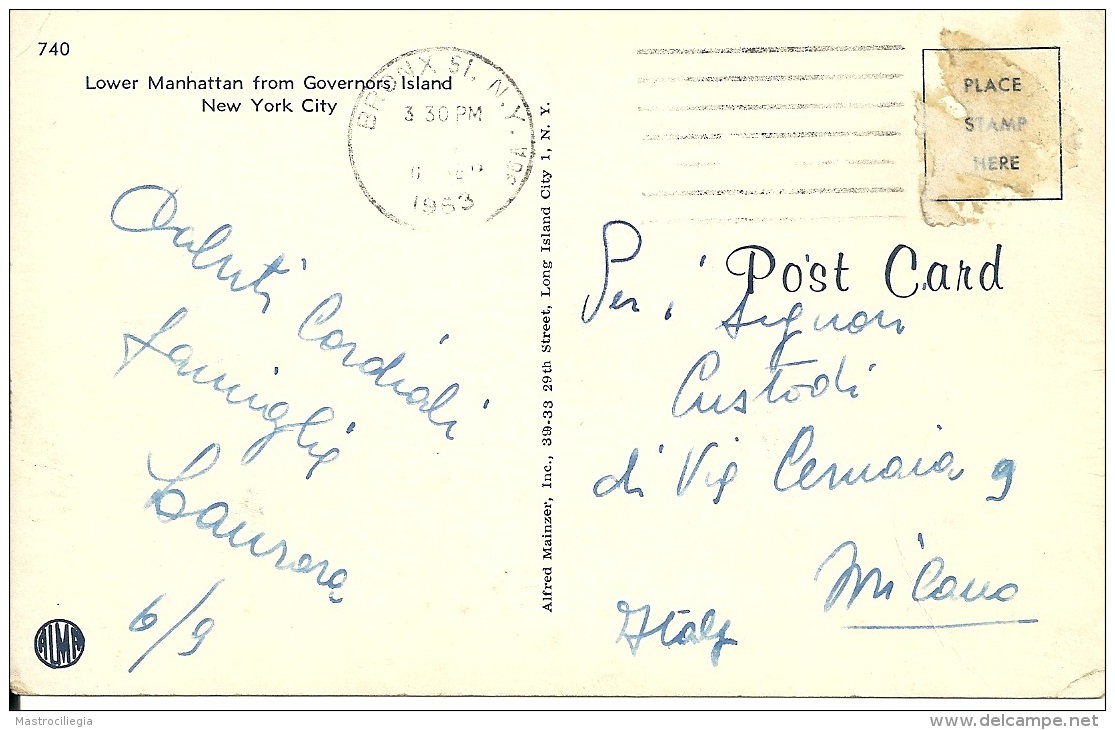 740
Lower Manhattan from Governors Island
New York City
BRONX 51, N.Y.
3 30 PM
1953
PLACE
STAMP
HERE
Post Card
Saluti
Cordiali
famiglia
6/9
Alfred Mainzer, Inc., 39-33 29th Street, Long Island City 1, N. Y.
Per i Signori
Custodi
di Via Cernaia 9
Milano
Italy
ALMA
Mastrociliegia
delcampe.net